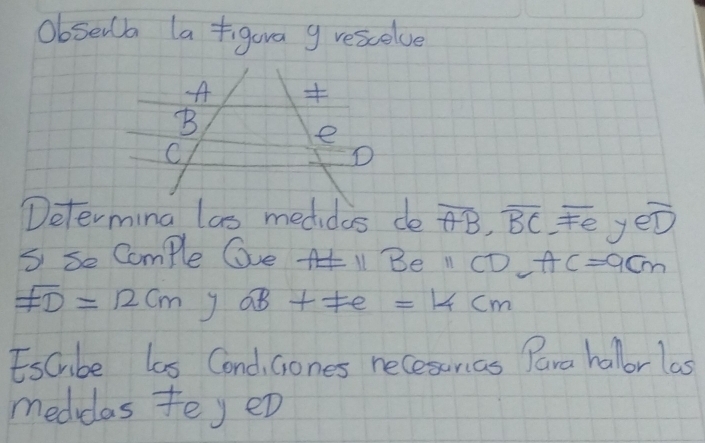 Observa la figura y resuelve
A F
B e
C D
Determina las medidas de AB, BC, Fe y eD
si se Comple Que AF || Be || CD, AC = 9cm
FD = 12 Cm y aB + Fe = 14 cm
Escribe las Condiciones necesarias Para hallar las
medidas Fe y eD